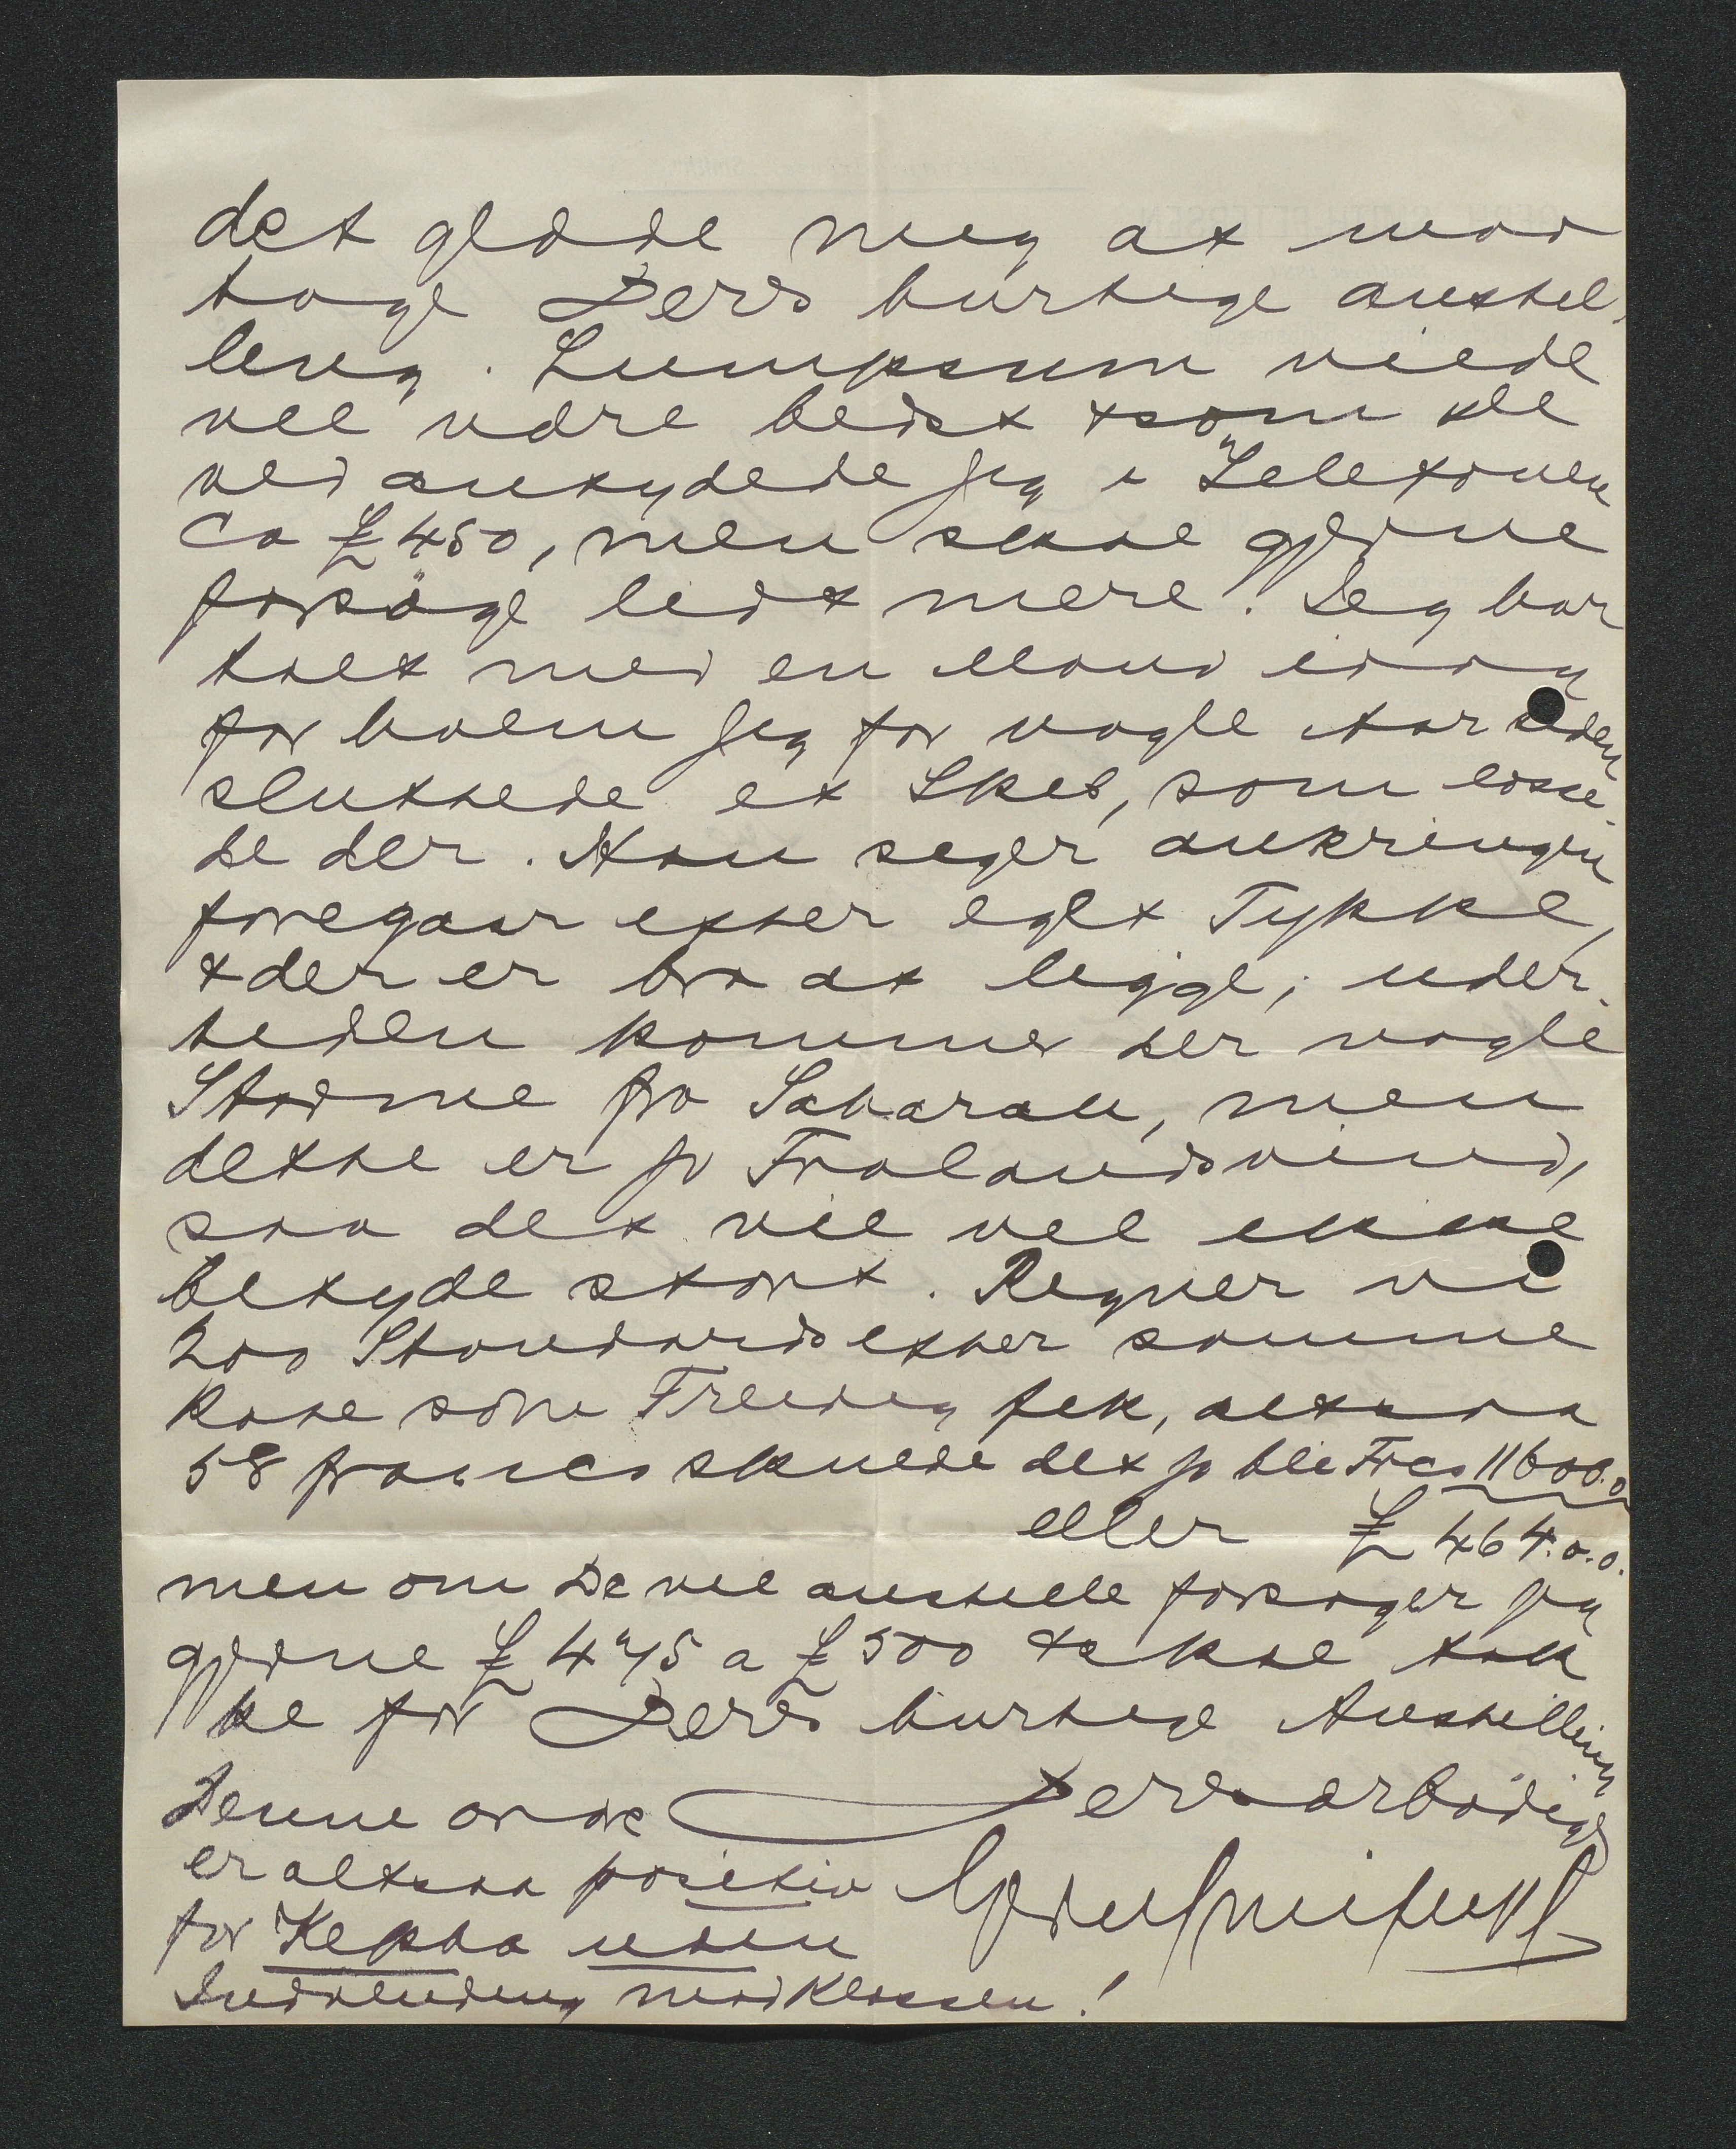 det glæde mig at mod
tage Deres hurtige anstil,
ling. Lumpsum vilde
vel være bedst & som De
ved antydede jeg i Telefonen
Ca £ 450, men skal gjerne
forsöge lidt mere. Jeg har
talt med en Mand idag
for hvem jeg for nogle Aar siden
sluttede et Skib, som losse-
de der. Han siger ankringen
foregaar efter eget Tykke,
& der er bra at ligge; uder-
tiden kommer der nogle
Storme fra Saharan, men
dette er jo Fralandsvind,
saa det vil vel ikke
betyde stort. Regner vi
200 Standards efter samme
Rate som Freidig fik, altsaa
58 francs skulde det jo bli Frcs 11600.0
eller £ 464.0.0.
men om De vil anstille forsøger jeg
gjerne £ 475 a £ 500 &
ke for Deres hurtige Anstilling
Denne ordre Deres ærbödige
er altsaa positiv
for Kepha uden
Indvending mod Klassen!